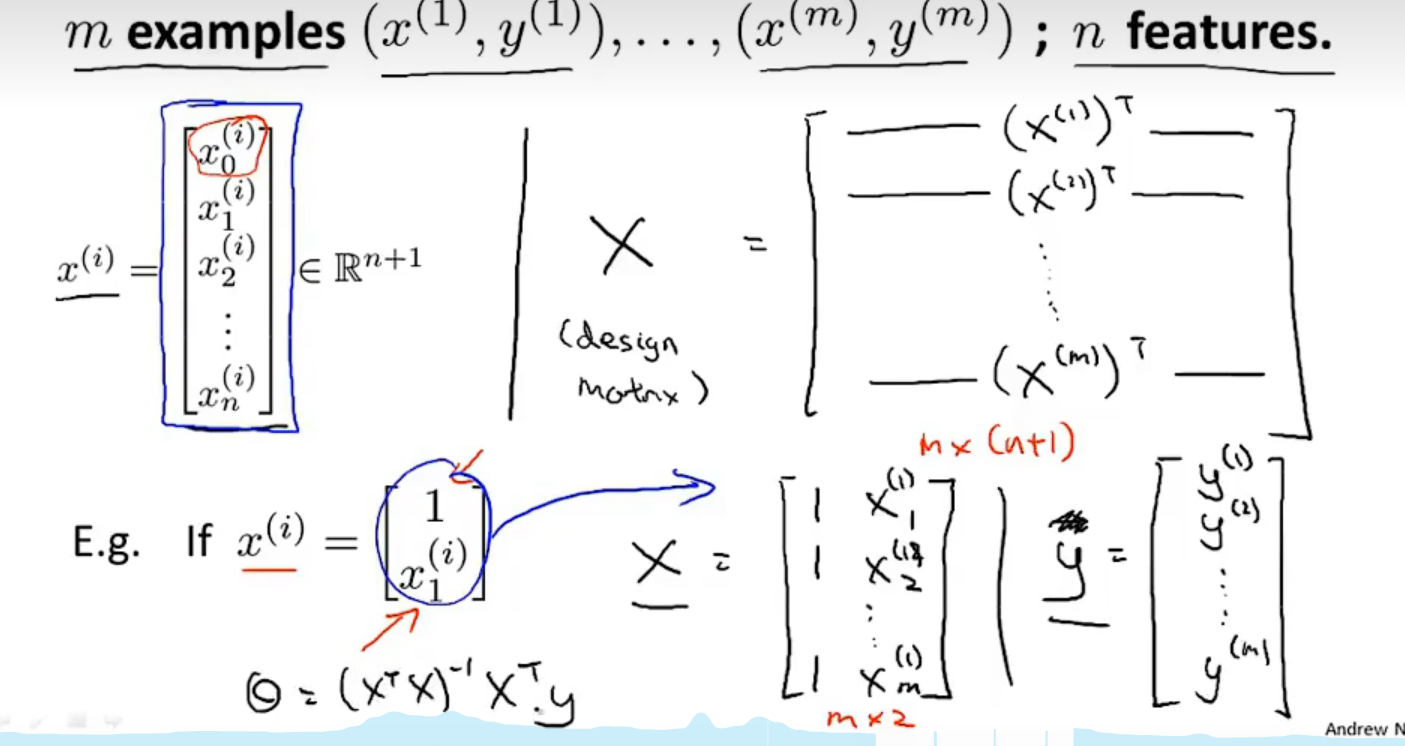 m examples (x^(1), y^(1)), ..., (x^(m), y^(m)) ; n features.
x^(i) = [x_0^(i) x_1^(i) x_2^(i) ⋮ x_n^(i)] ∈ ℝ^(n+1)
X (design matrix) = [— (x^(1))^T — — (x^(2))^T — ⋮ — (x^(m))^T —]
m x (n+1)
E.g. If x^(i) = [1 x_1^(i)]
X = [1 x_1^(1) 1 x_2^(1) ⋮ 1 x_m^(1)]
m x 2
y = [y^(1) y^(2) ⋮ y^(m)]
Θ = (X^T X)^-1 X^T . y
Andrew N